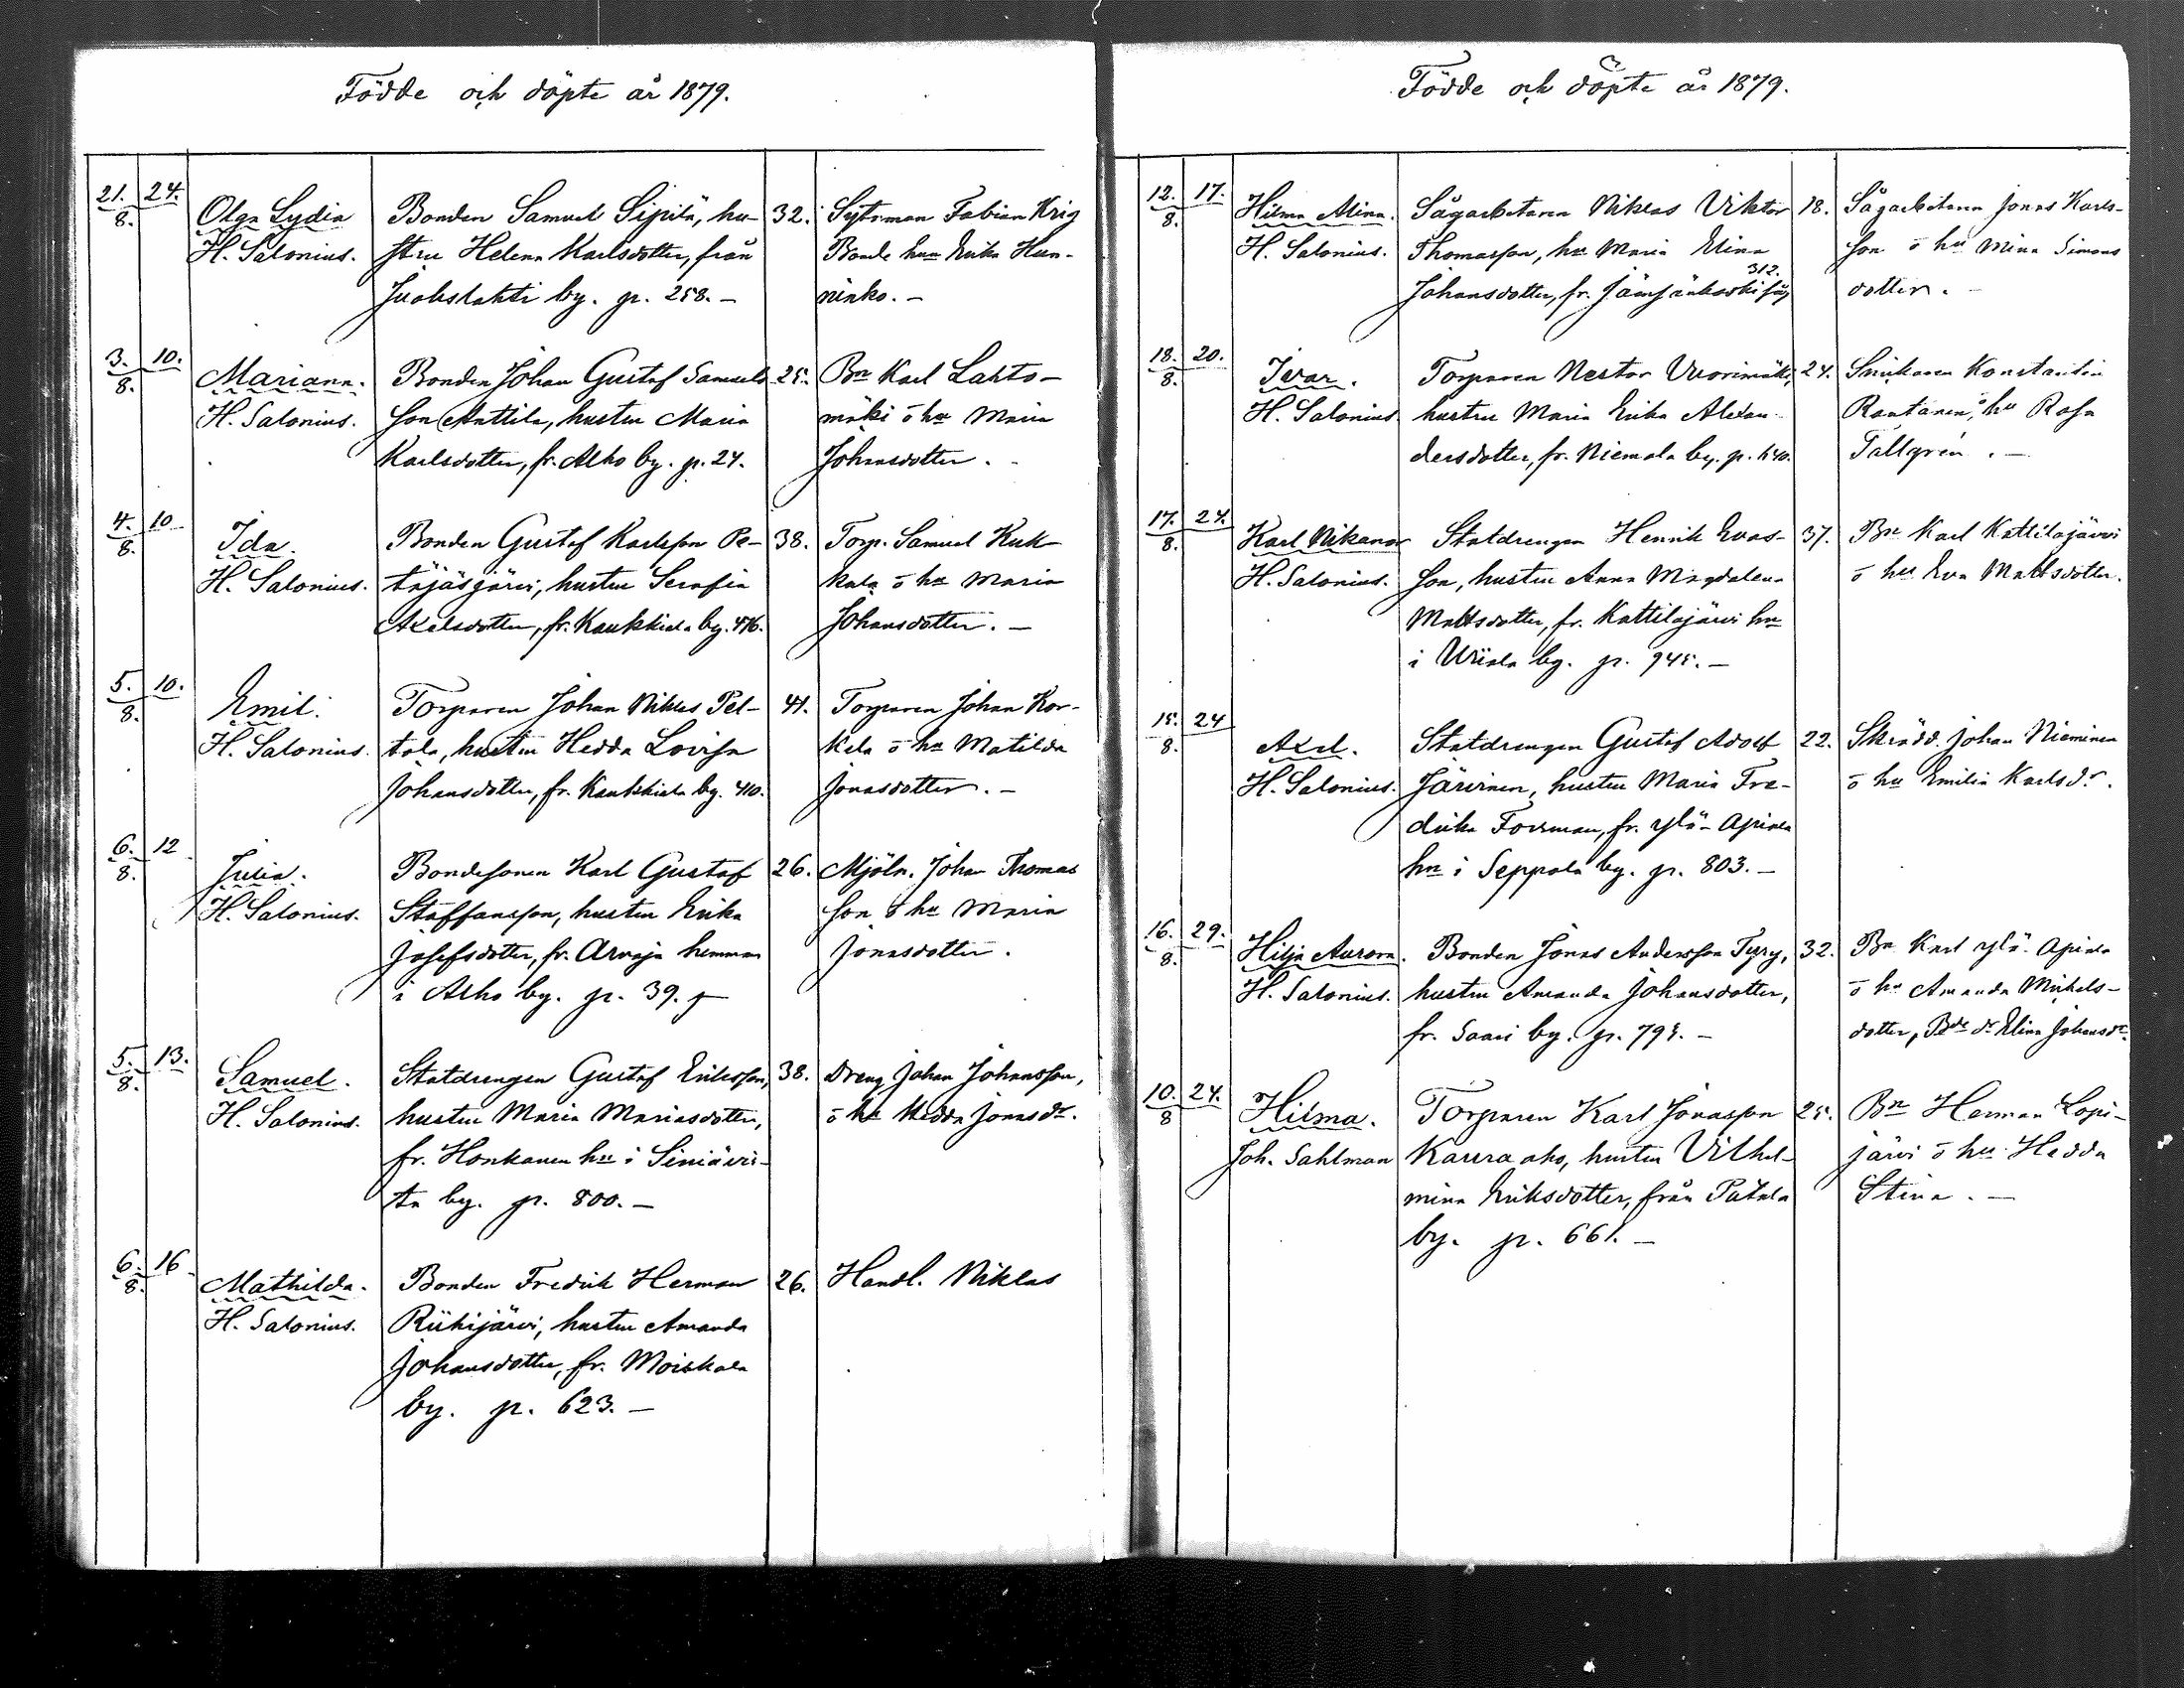 Födde och döpte år 1879.
21. 24. Olga Lydia Bonden Samuel Sipilä, hu- 32. Sytnman Fabian Krig
8. H. Salonius. stru Helena Karlsdotter, från Bonde hnn Erika Hun-
by. p. 258. - ninko. -
3. 10. Mariana. Bonden Johan Gustaf Samuels 25. Bn Karl Lahto-
8. H. Salonius. son Anttila, hustru Maria mäki o hu Maria
Karlsdotter, fr. Alho by. p. 24. Johansdotter.
4. 10 Ida. Bonden Gustaf Karlsson Pe- 38. Torp. Samuel Kuk-
8. H. Salonius. täjäsjärvi, hustru Serafia kola o hu Maria
Axelsdotter, fr. Kaukkiala by. 476. Johansdotter. -
5. 10. Emil. Torparen Johan Niklas Pel- 41. Torparen Johan Kor-
8. H. Salonius. tola, hustru Hedda Lovisa kela o hu Matilda
Johansdotter, fr. Kaukkiala by. 410. Jonasdotter. -
6. 12 Julia. Bondesonen Karl Gustaf 26. Mjöln. Johan Thomas
8. H. Salonius. Staffansson, hustru Erika son o hu Maria
Josefsdotter, fr. Arvaja hemman Jonasdotter.
i Alho by. p. 39.
5. 13. Samuel. Statdrengen Gustaf Eriksson, 38. Dreng Johan Johansson,
8. H. Salonius. hustru Maria Mariasdotter, o hu Hedda Jonasdr.
fr. Honkanen hn i Siniävir-
ta by. p. 800. -
6. 16 Mathilda. Bonden Fredrik Herman 26. Handl. Niklas
8. H. Salonius. Riihijärvi, hustru Amanda
Johansdotter, fr. Moiskala
by. p. 623. -
Födde och döpte år 1879.
12. 17. Hilma Alina. Sågarbetaren Niklas Viktor 18. Sågarbetaren Jonas Karls-
8. H. Salonius. Thomasson, hu Maria Elina son o hu Mina Simons
312.
Johansdotter, fr. såg dotter. -
18. 20. Ivar. Torparen Nestor Vuorimäki, 24. Snickaren Konstantin
8. H. Salonius. hustru Maria Erika Alexan- Rantanen, hu Rosa
dersdotter, fr. Niemola by. p. 640. Tallgrén. -
17. 24. Karl Nikanor Statdrengen Henrik Evas- 37. Bn Karl Kattilajärvi
8. H. Salonius. son, hustru Anna Magdalena o hu Eva Mattsdotter.
Mattsdotter, fr. Kattilajärvi hn
i Uriala by. p. 945. -
15. 24 Axel. Statdrengen Gustaf Adolf 22. Skrädd. Johan Nieminen
8. H. Salonius. Järvinen, hustru Maria Fre- o hu Emilia Karlsdr.
drika Forsman, fr. Ylä-Apiala
hn i Seppola by. p. 803. -
16. 29. Hilja Aurora. Bonden Jonas Andersson Tyry, 32. Bn Karl Ylä-Apiala
8. H. Salonius. hustru Amanda Johansdotter, o hu Amanda Mikels-
fr. Saari by. p. 795. - dotter, Bde dr Elina Johansdr.
10. 24. Hilma. Torparen Karl Jonasson 25. Bn Herman Lopi-
8 Joh. Sahlman Kauraaho, hustru Vilhel- järvi o hu Hedda
mina Eriksdotter, från Patala Stina. -
by. p. 661. -